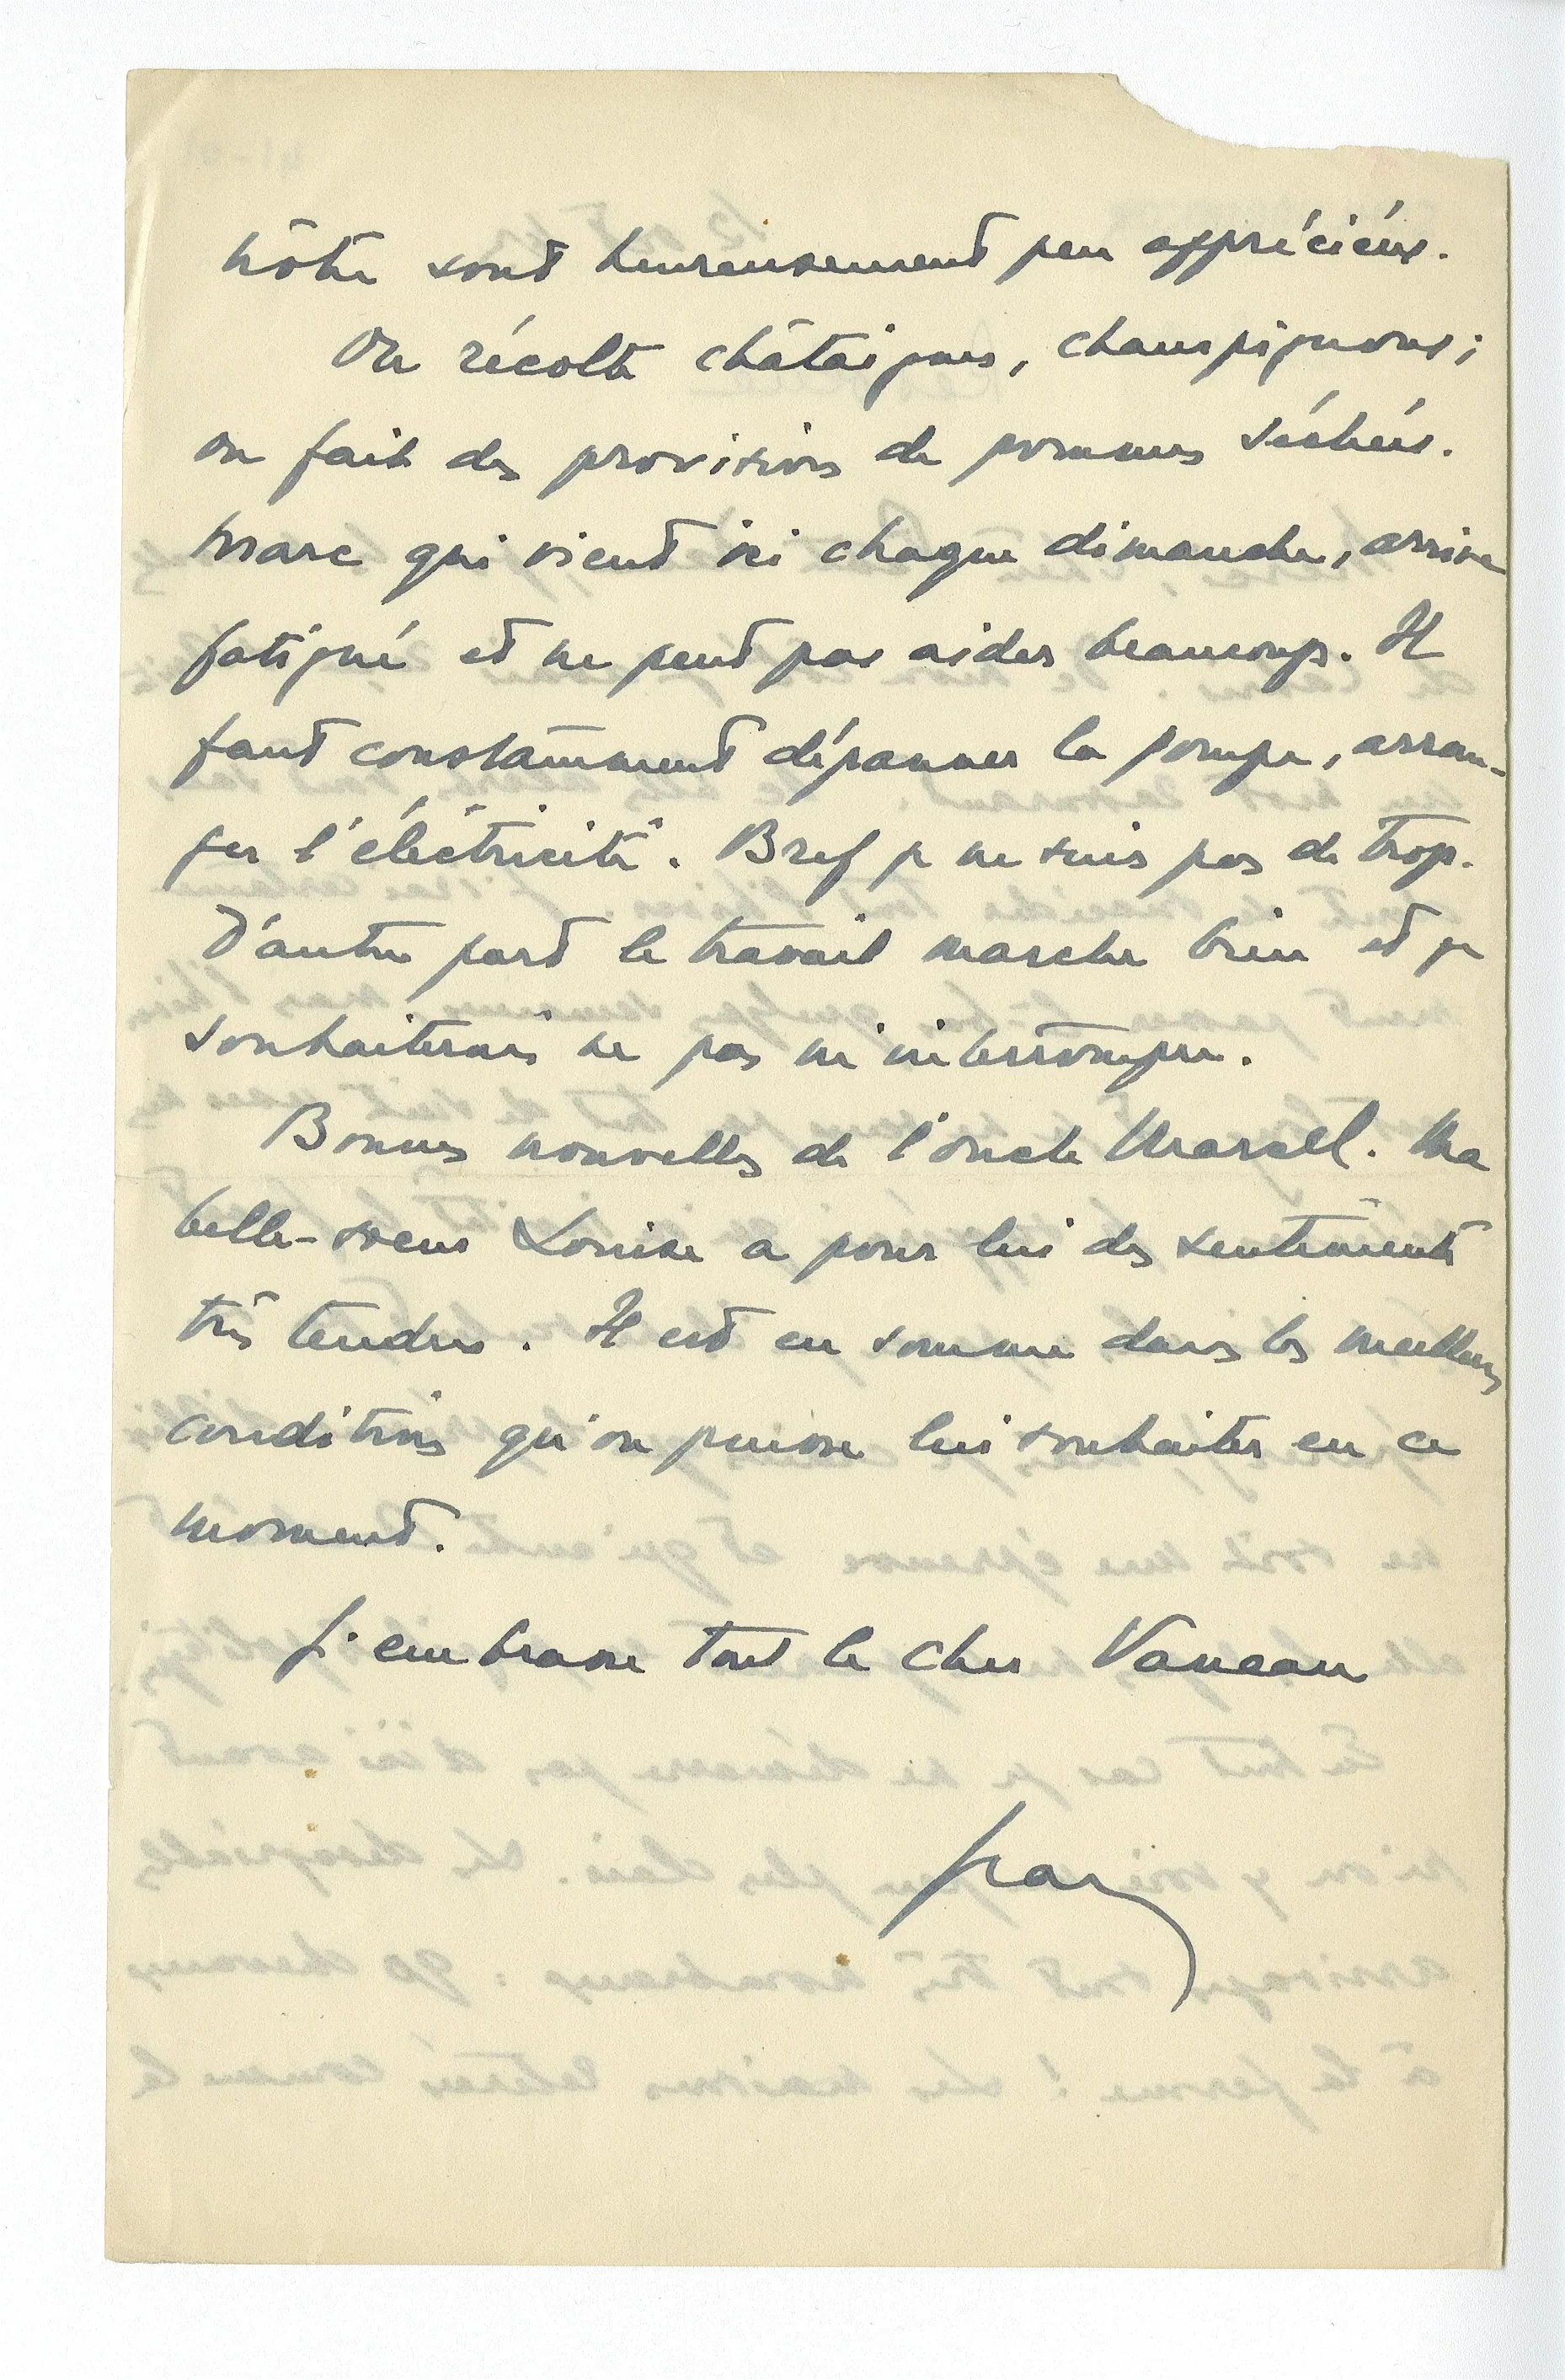 nôtre sont heureusement peu appréciées.
On récolte châtaignes, champignons;
on fait des provisions de pommes séchées.
Marc qui vient ici chaque dimanche, arrive
fatigué et ne peut pas aider beaucoup. Il
faut constamment dépanner la pompe, arran-
ger l'électricité. Bref je ne suis pas de trop.
D'autre part le travail marche bien et je
souhaiterais ne pas m'interrompre.
Bonnes nouvelles de l'oncle Marcel. Ma
belle-soeur Louise a pour lui des sentiments
très tendres. Il est en somme dans les meilleures
conditions qu'on puisse lui souhaiter en ce
moment.
J'embrasse tout le cher Vaneau